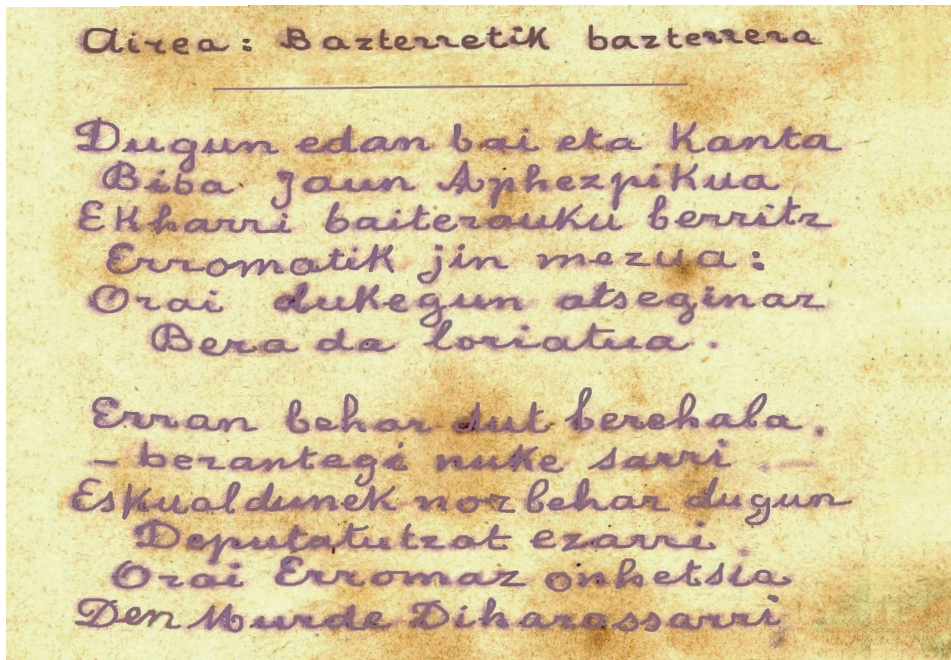 Airea: Bazterretik bazterrera
Dugun edan bai eta Kanta
Biba Jaun Aphezpikua
Ekharri baiterauku berritz
Erromatik jin mezua:
Orai dukegun atseginaz
Bera da loriatua.
Erran behar dut berehala,
- berantegi nuke sarri -
Eskualdunek nor behar dugun
Deputatutzat ezarri.
Orai Erromaz onhetsia
Den Murde Diharassarri